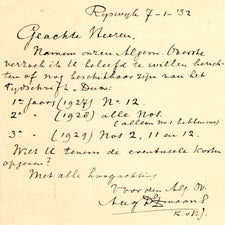 Ryswyk 7-1-'32
Geachte Heeren,
Namens onzen Algem. Overste
verzoek ik U beleefd te willen berich-
ten of nog beschikbaar zijn van het
tijdschrift. Dux:
1e jaars (1927) No. 12.
2e " (1928) alle Nos.
(alleen met uitbreid.
3e " (1929) Nos 2, 11 en 12.
Wilt U tevens de eventueele kosten
opgeven?
Met alle hoogachting
Voor den Alg. Ov.
Aug.